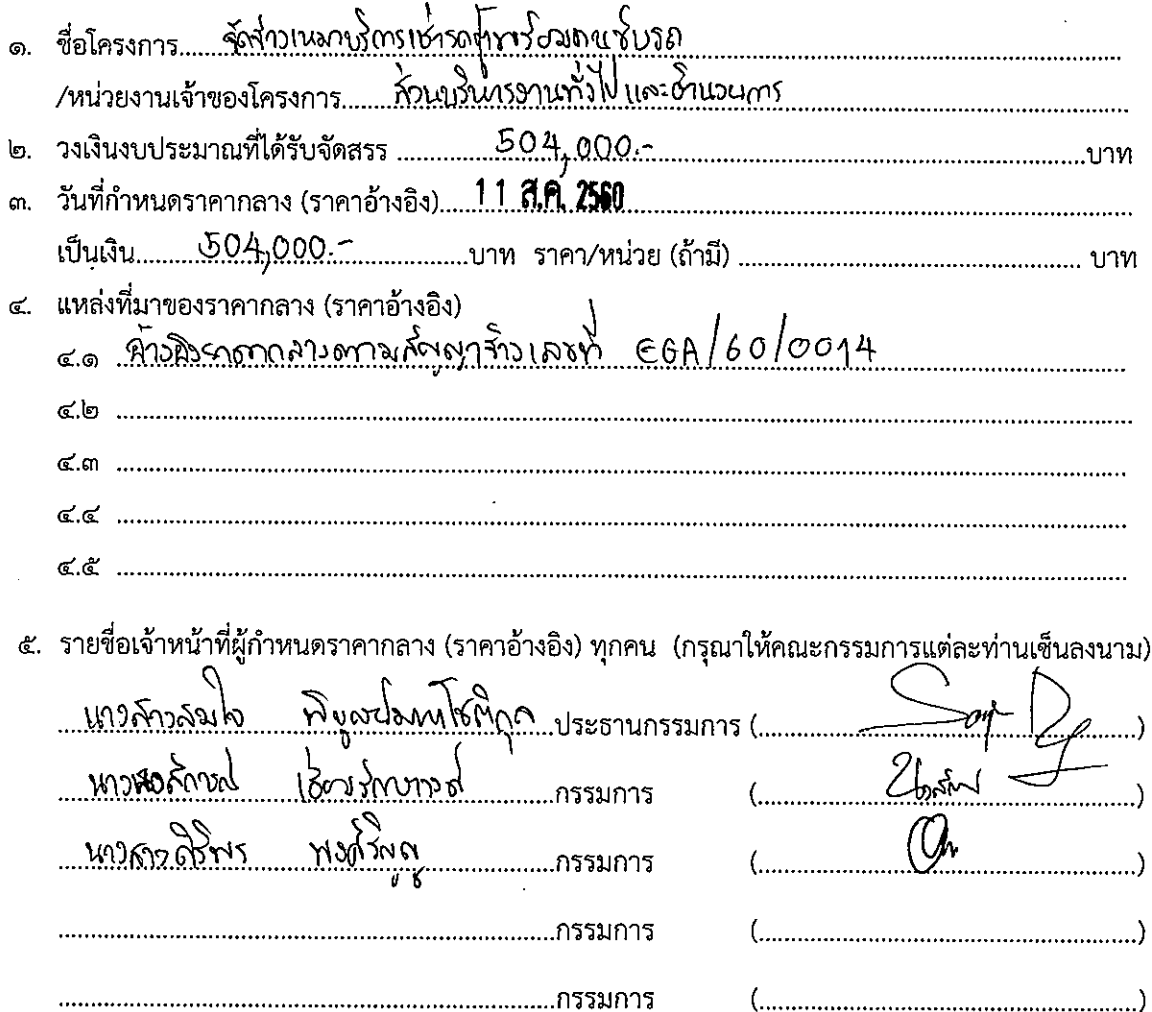 ๑. ชื่อโครงการ.....จัดจ้างเหมาบริการเช่ารถตู้พร้อมคนขับรถ
/หน่วยงานเจ้าของโครงการ.....ส่วนบริหารงานทั่วไป และอำนวยการ
๒. วงเงินงบประมาณที่ได้รับจัดสรร .....504,000.-.....บาท
๓. วันที่กำหนดราคากลาง (ราคาอ้างอิง).....11 ส.ค. 2560
เป็นเงิน.....504,000.-.....บาท ราคา/หน่วย (ถ้ามี) ..... บาท
๔. แหล่งที่มาของราคากลาง (ราคาอ้างอิง)
๔.๑ อ้างอิงราคากลางตามสัญญาจ้างเลขที่ EGA/60/0014
๔.๒
๔.๓
๔.๔
๔.๕
๕. รายชื่อเจ้าหน้าที่ผู้กำหนดราคากลาง (ราคาอ้างอิง) ทุกคน (กรุณาให้คณะกรรมการแต่ละท่านเซ็นลงนาม)
นางสาวสมใจ .....ประธานกรรมการ (.....)
.....กรรมการ (.....)
นางสาวศิริพร .....กรรมการ (.....)
.....กรรมการ (.....)
.....กรรมการ (.....)